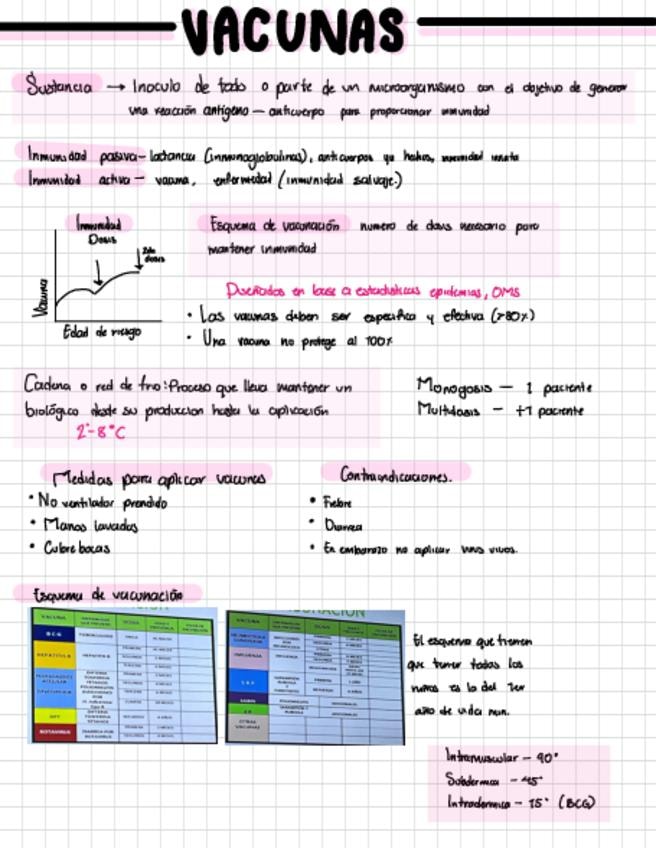 VACUNAS
Sustancia → Inoculo de todo o parte de un microorganismo con el objetivo de generar
una reacción antígeno — anticuerpo para proporcionar inmunidad
Inmunidad pasiva - lactancia (inmunoglobulinas), anticuerpos ya hechos, inmunidad innata
Inmunidad activa - vacuna, enfermedad (inmunidad salvaje.)
Inmunidad
Dosis
2da dosis
Vacuna
Edad de riesgo
Esquema de vacunación numero de dosis necesario para
mantener inmunidad
Diseñados en base a estadísticas epidemias, OMS
• Las vacunas deben ser especifica y efectiva (>80%)
• Una vacuna no protege al 100%
Cadena o red de frio: Proceso que lleva mantener un
biológico desde su produccion hasta la aplicación
2°-8°C
Monodosis — 1 paciente
Multidosis — +1 paciente
Medidas para aplicar vacunas
• No ventilador prendido
• Manos lavadas
• Cubre bocas
Contraindicaciones.
• Fiebre
• Diarrea
• En embarazo no aplicar virus vivos.
Esquema de vacunación
VACUNA
BCG
TUBERCULOSIS
HEPATITIS B
HEPATITIS B
DPT
DIFTERIA
TOSFERINA
TETANOS
ROTAVIRUS
DIARREA POR
ROTAVIRUS
VACUNA
INFLUENZA
INFLUENZA
SRP
SABIN
SR
OTRAS
VACUNAS
El esquema que tienen
que tener todos los
niños es lo del 1er
año de vida min.
Intramuscular — 90°
Subdermica — 45°
Intradermica — 15° (BCG)